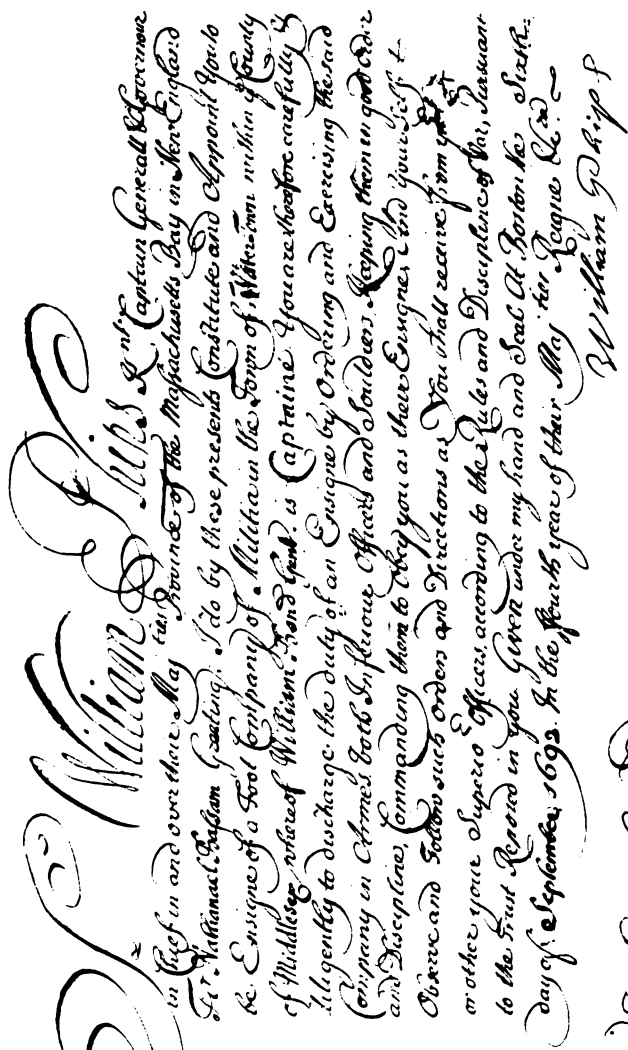 Sr William Phips Knt Captain Generall & Governour
in Chief in and over their Majties Province of the Massachusetts Bay in New England
To Nathanael Balsam Greeting I do by these presents Constitute and Appoint You to
be Ensigne of a Foot Company of Militia in the Town of Watertown within ye County
of Middlesex whereof William Bond Gent is Captaine You are therefore carefully &
diligently to discharge the duty of an Ensigne by Ordering and Exercising the said
Company in Armes both Infiriour Officers and Souldiers Keeping them in good Order
and Discipline, Commanding them to Obey you as their Ensigne, And your self to
Observe and Follow such Orders and Directions as You shall receive from
or other your Superio Officers according to the Rules and Discipline of War, Pursuant
to the Trust Reposed in you Given under my hand and Seal At Boston the Sixth
day of September, 1692. In the fourth year of their Majties Reigne &c
William Phips